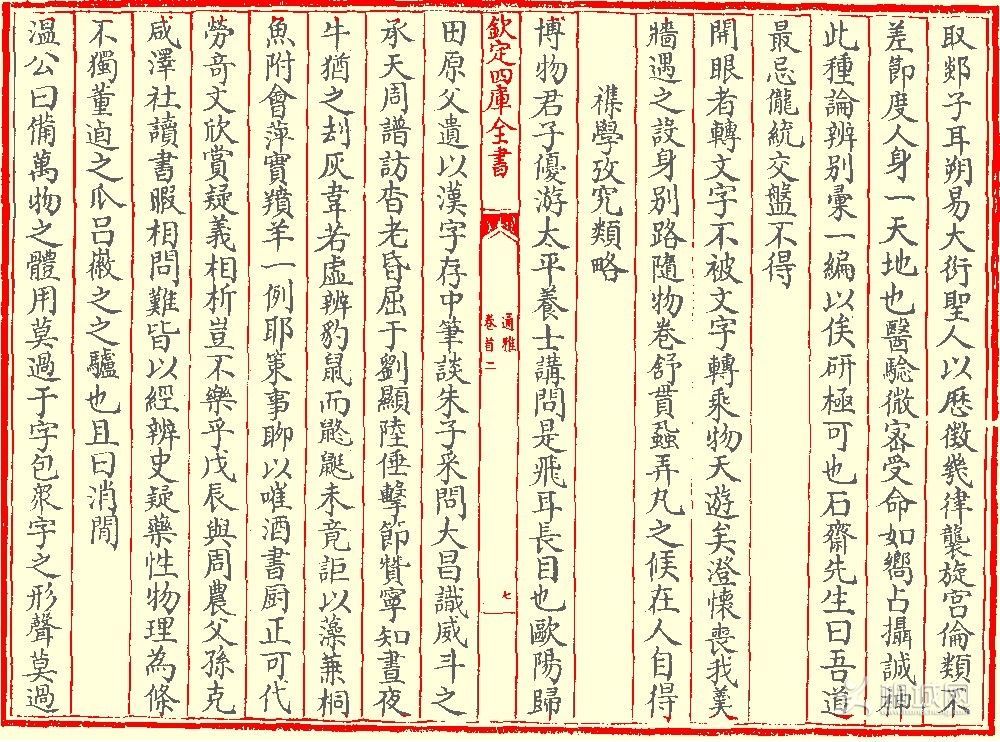 取郯子耳朔易大衍聖人以厯徴幾律襲旋宮倫類不
差節度人身一天地也醫騐微宻受命如嚮占攝誠神
此種論辨别彚一編以俟研極可也石齋先生曰吾道
最忌儱統交盤不得
開眼者轉文字不被文字轉乘物天遊矣澄懷喪我羮
牆遇之設身别路隨物卷舒貫蝨弄丸之候在人自得
襍學攷究類略
博物君子優游太平養士講問是飛耳長目也歐陽歸
欽定四庫全書
通雅
卷首二
七
田原父遺以漢字存中筆談朱子采問大昌識威斗之
承天周譜訪杳老昏屈于劉顯陸倕擊節贊寧知晝夜
牛猶之刦灰韋若虚辨豹䑕而䶂鼮未竟詎以藻蒹桐
魚附會萍實羵羊一例耶策事聊以唯酒書厨正可代
勞竒文欣賞疑義相析豈不樂乎戊辰與周農父孫克
咸澤社讀書暇相問難皆以經辨史疑藥性物理為條
不獨董逌之瓜吕㯙之之驢也且曰消閒
温公曰備萬物之體用莫過于字包衆字之形聲莫過